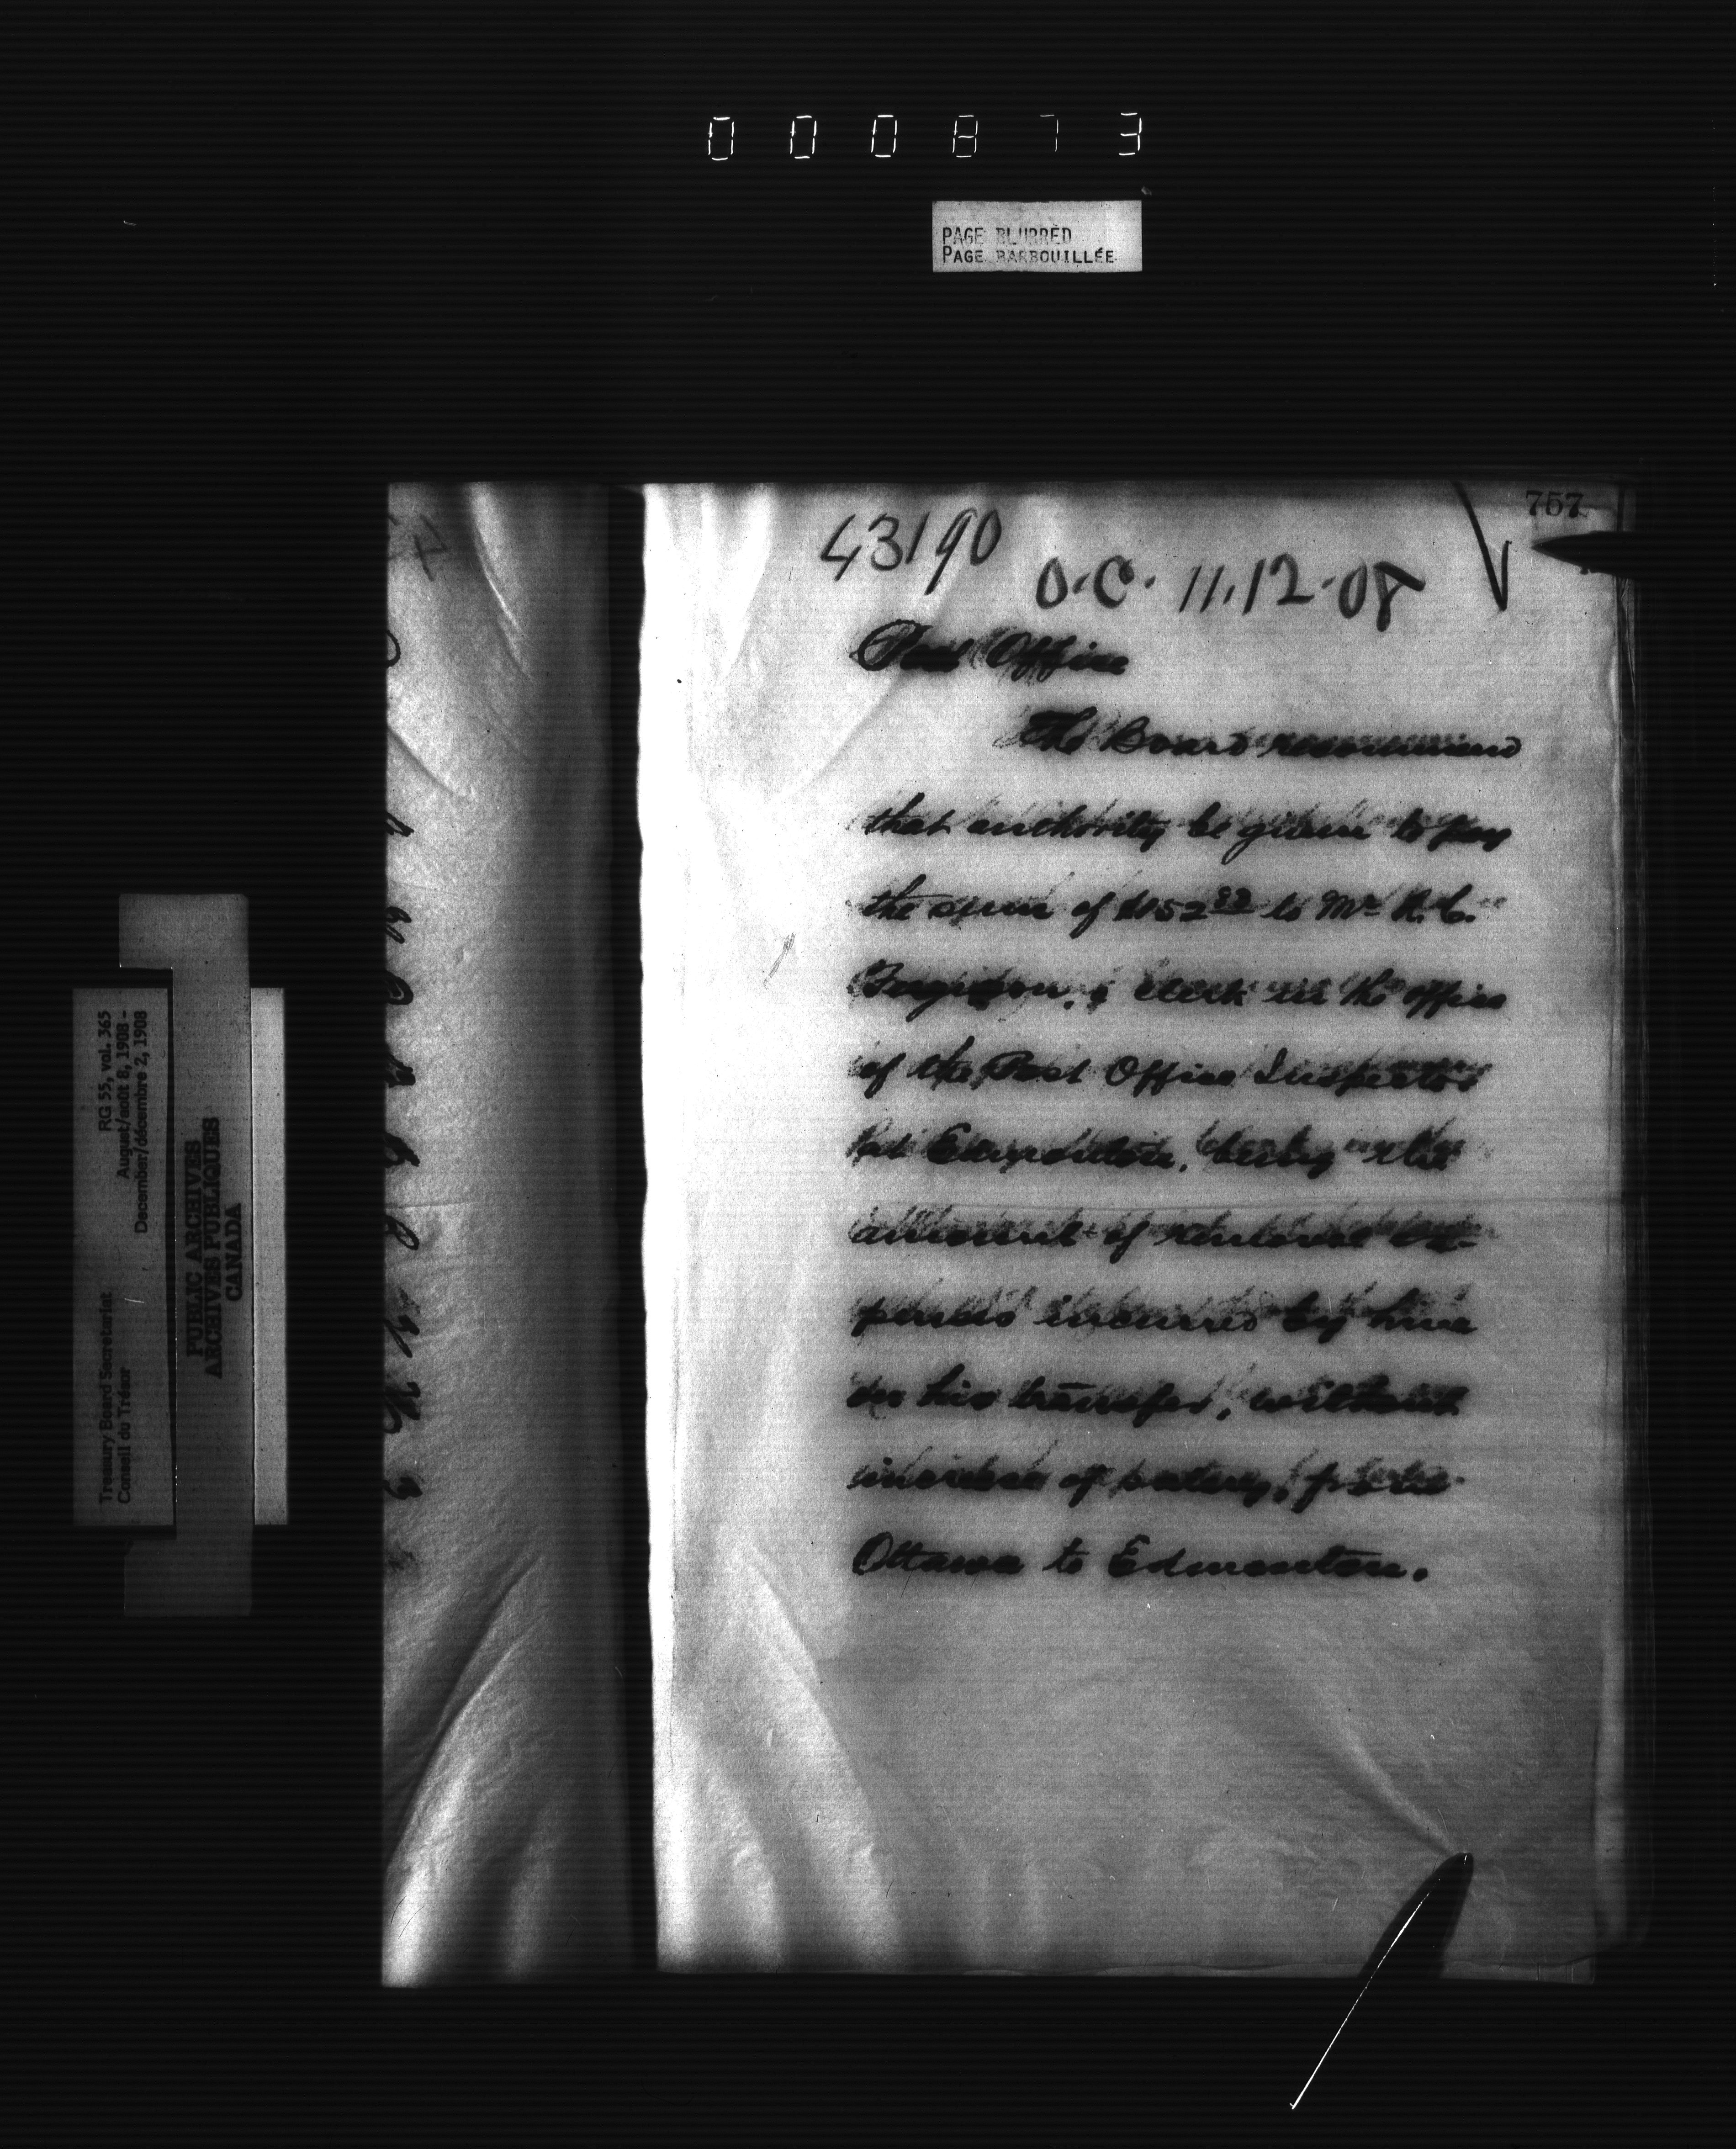 000873
PAGE BLURRED
PAGE BARBOUILLÉE
757
43190
O.C. 11.12.08
Post Office
The Board recommend
that authority be given to pay
the sum of to Mr.
Ferguson, a clerk in the office
of the Post Office Inspector
at Edmonton, being the
amount of removal ex-
penses incurred by him
on his transfer, without
increase of salary, from
Ottawa to Edmonton.
RG 55, vol. 365
August/août 8, 1908 -
December/décembre 2, 1908
Treasury Board Secretariet
Conseil du Trésor
PUBLIC ARCHIVES
ARCHIVES PUBLIQUES
CANADA